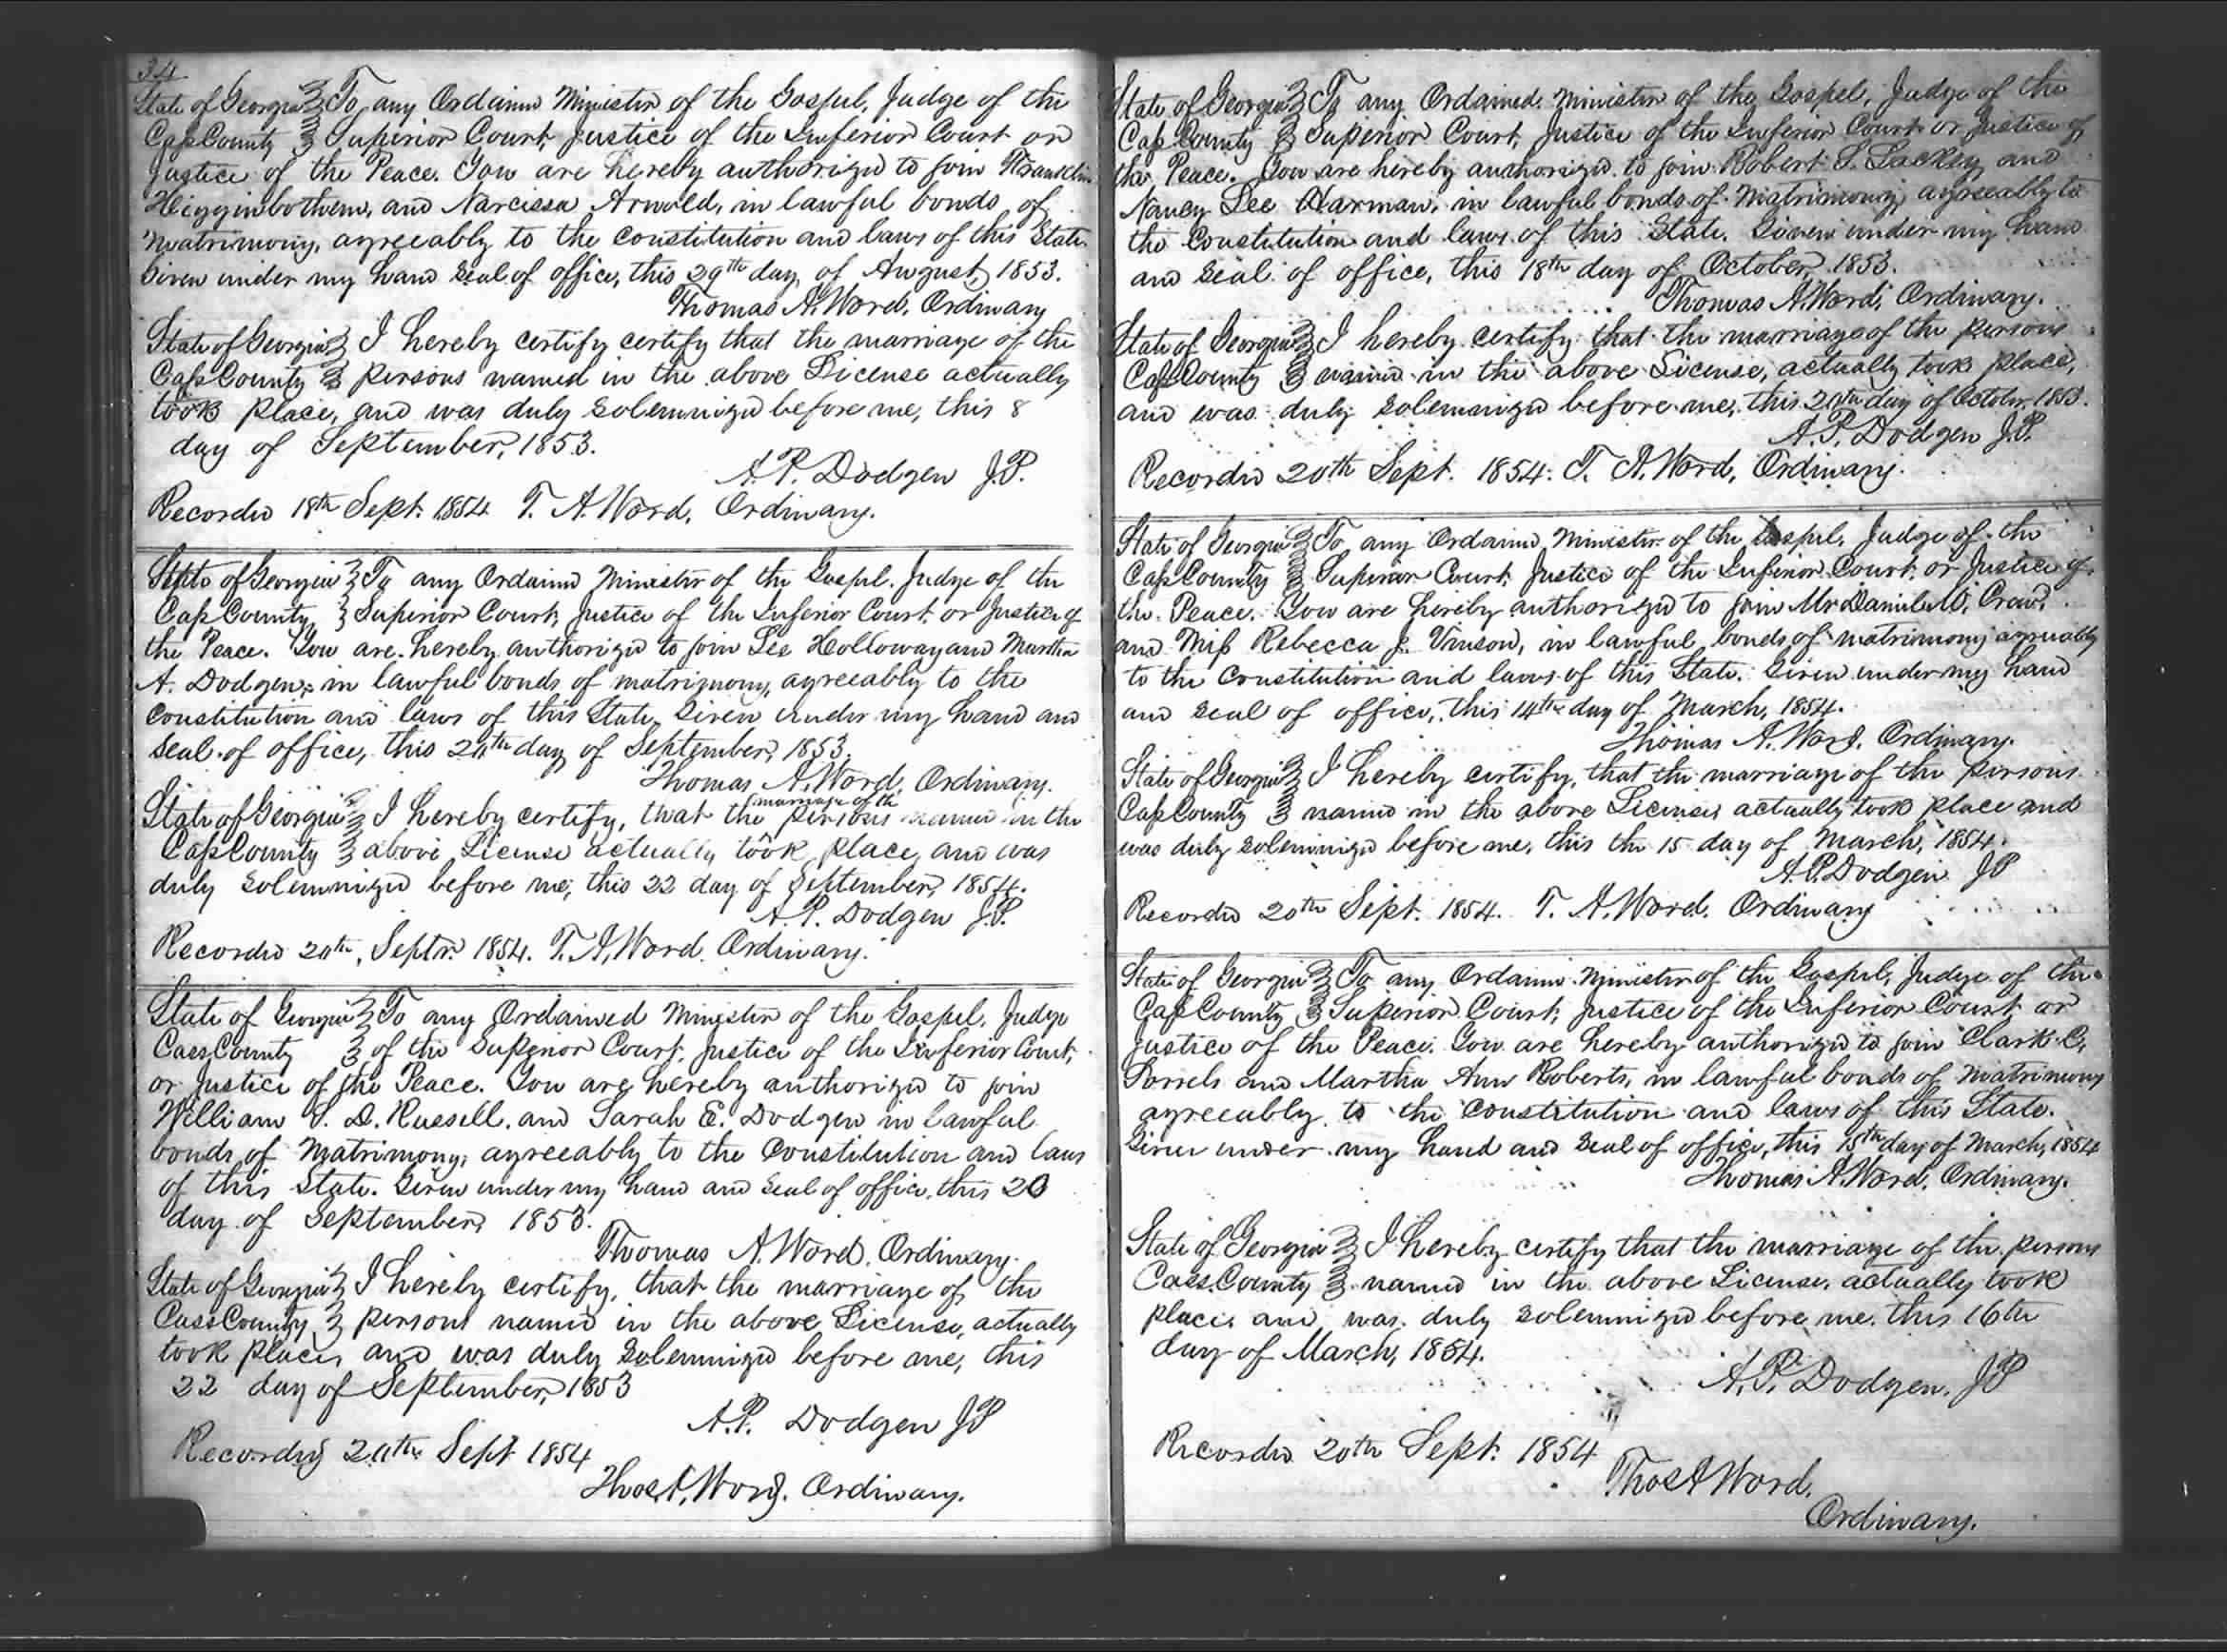 34
State of Georgia } To any Ordaind Minister of the Gospel, Judge of the
Cass County } Superior Court, Justice of the Inferior Court or
Justice of the Peace. You are hereby authorized to join Franklin
Higginbothem, and Narcissa Arnold, in lawful bonds of
matrimony, agreeably to the constitution and laws of this State.
Given under my hand seal of office, this 29th day of August, 1853.
Thomas A. Word, Ordinary
State of Georgia } I hereby certify certify that the marriage of the
Cass County } persons named in the above License actually
took place, and was duly solemnized before me, this 8
day of September, 1853.
A. P. Dodgen J.P.
Recorded 18th Sept. 1854 T. A. Word, Ordinary.
State of Georgia } To any Ordaind Minister of the Gospel. Judge of the
Cass County } Superior Court, Justice of the Inferior Court or Justice of
the Peace. You are hereby authorized to join Lee Holloway and Martha
A. Dodgen, in lawful bonds of matrimony, agreeably to the
constitution and laws of this State. Given under my hand and
seal of office, this 20th day of September, 1853.
Thomas A. Word, Ordinary.
State of Georgia } I hereby certify, that the marriage of the persons named in the
Cass County } above License actually took place, and was
duly solemnized before me, this 22 day of September, 1854.
A. P. Dodgen J.P.
Recorded 20th, Septr. 1854. T. A. Word. Ordinary.
State of Georgia } To any Ordained Minister of the Gospel. Judge
Cass County } of the Superior Court, Justice of the Inferior Court,
or Justice of the Peace. You are hereby authorized to join
William D. Russell, and Sarah E. Dodgen in lawful
bonds of Matrimony, agreeably to the Constitution and laws
of this State. Given under my hand and seal of office, this 20
day of September, 1853.
Thomas A. Word. Ordinary.
State of Georgia } I hereby certify, that the marriage of the
Cass County } persons named in the above License, actually
took place, and was duly solemnized before me, this
22 day of September, 1853
A. P. Dodgen JP
Recorded 20th Sept 1854
Thos A. Word. Ordinary.
State of Georgia } To any Ordained Minister of the Gospel, Judge of the
Cass County } Superior Court, Justice of the Inferior Court or Justice of
the Peace. You are hereby authorized to join Robert S. Lackey and
Nancy Lee Harman, in lawful bonds of Matrimony, agreeably to
the Constitution and laws of this State. Given under my hand
and seal of office, this 18th day of October, 1853.
Thomas A. Word, Ordinary.
State of Georgia } I hereby certify that the marriage of the persons
Cass County } named in the above License, actually took place,
and was duly solemnized before me, this 20th day of October, 1853.
A. P. Dodgen J.P.
Recorded 20th Sept. 1854. T. A. Word, Ordinary.
State of Georgia } To any Ordaind Minister of the Gospel, Judge of the
Cass County } Superior Court, Justice of the Inferior Court, or Justice of
the Peace. You are hereby authorized to join Mr Daniel Crow,
and Miss Rebecca J. Vinson, in lawful bonds of matrimony agreeably
to the Constitution and laws of this State. Given under my hand
and seal of office, this 14th day of March, 1854.
Thomas A. Word. Ordinary.
State of Georgia } I hereby certify, that the marriage of the persons
Cass County } named in the above License, actually took place and
was duly solemnized before me, this the 15 day of March, 1854.
A. P. Dodgen JP
Recorded 20th Sept. 1854. T. A. Word. Ordinary
State of Georgia } To any Ordaind Minister of the Gospel, Judge of the
Cass County } Superior Court, Justice of the Inferior Court or
Justice of the Peace. You are hereby authorized to join Clark C.
and Martha Ann Roberts, in lawful bonds of Matrimony
agreeably to the constitution and laws of this State.
Given under my hand and seal of office, this 15th day of March, 1854
Thomas A. Word. Ordinary.
State of Georgia } I hereby certify that the marriage of the persons
Cass County } named in the above License, actually took
place, and was duly solemnized before me, this 16th
day of March, 1854.
A. P. Dodgen. JP
Recorded 20th Sept. 1854
Thos A Word.
Ordinary.